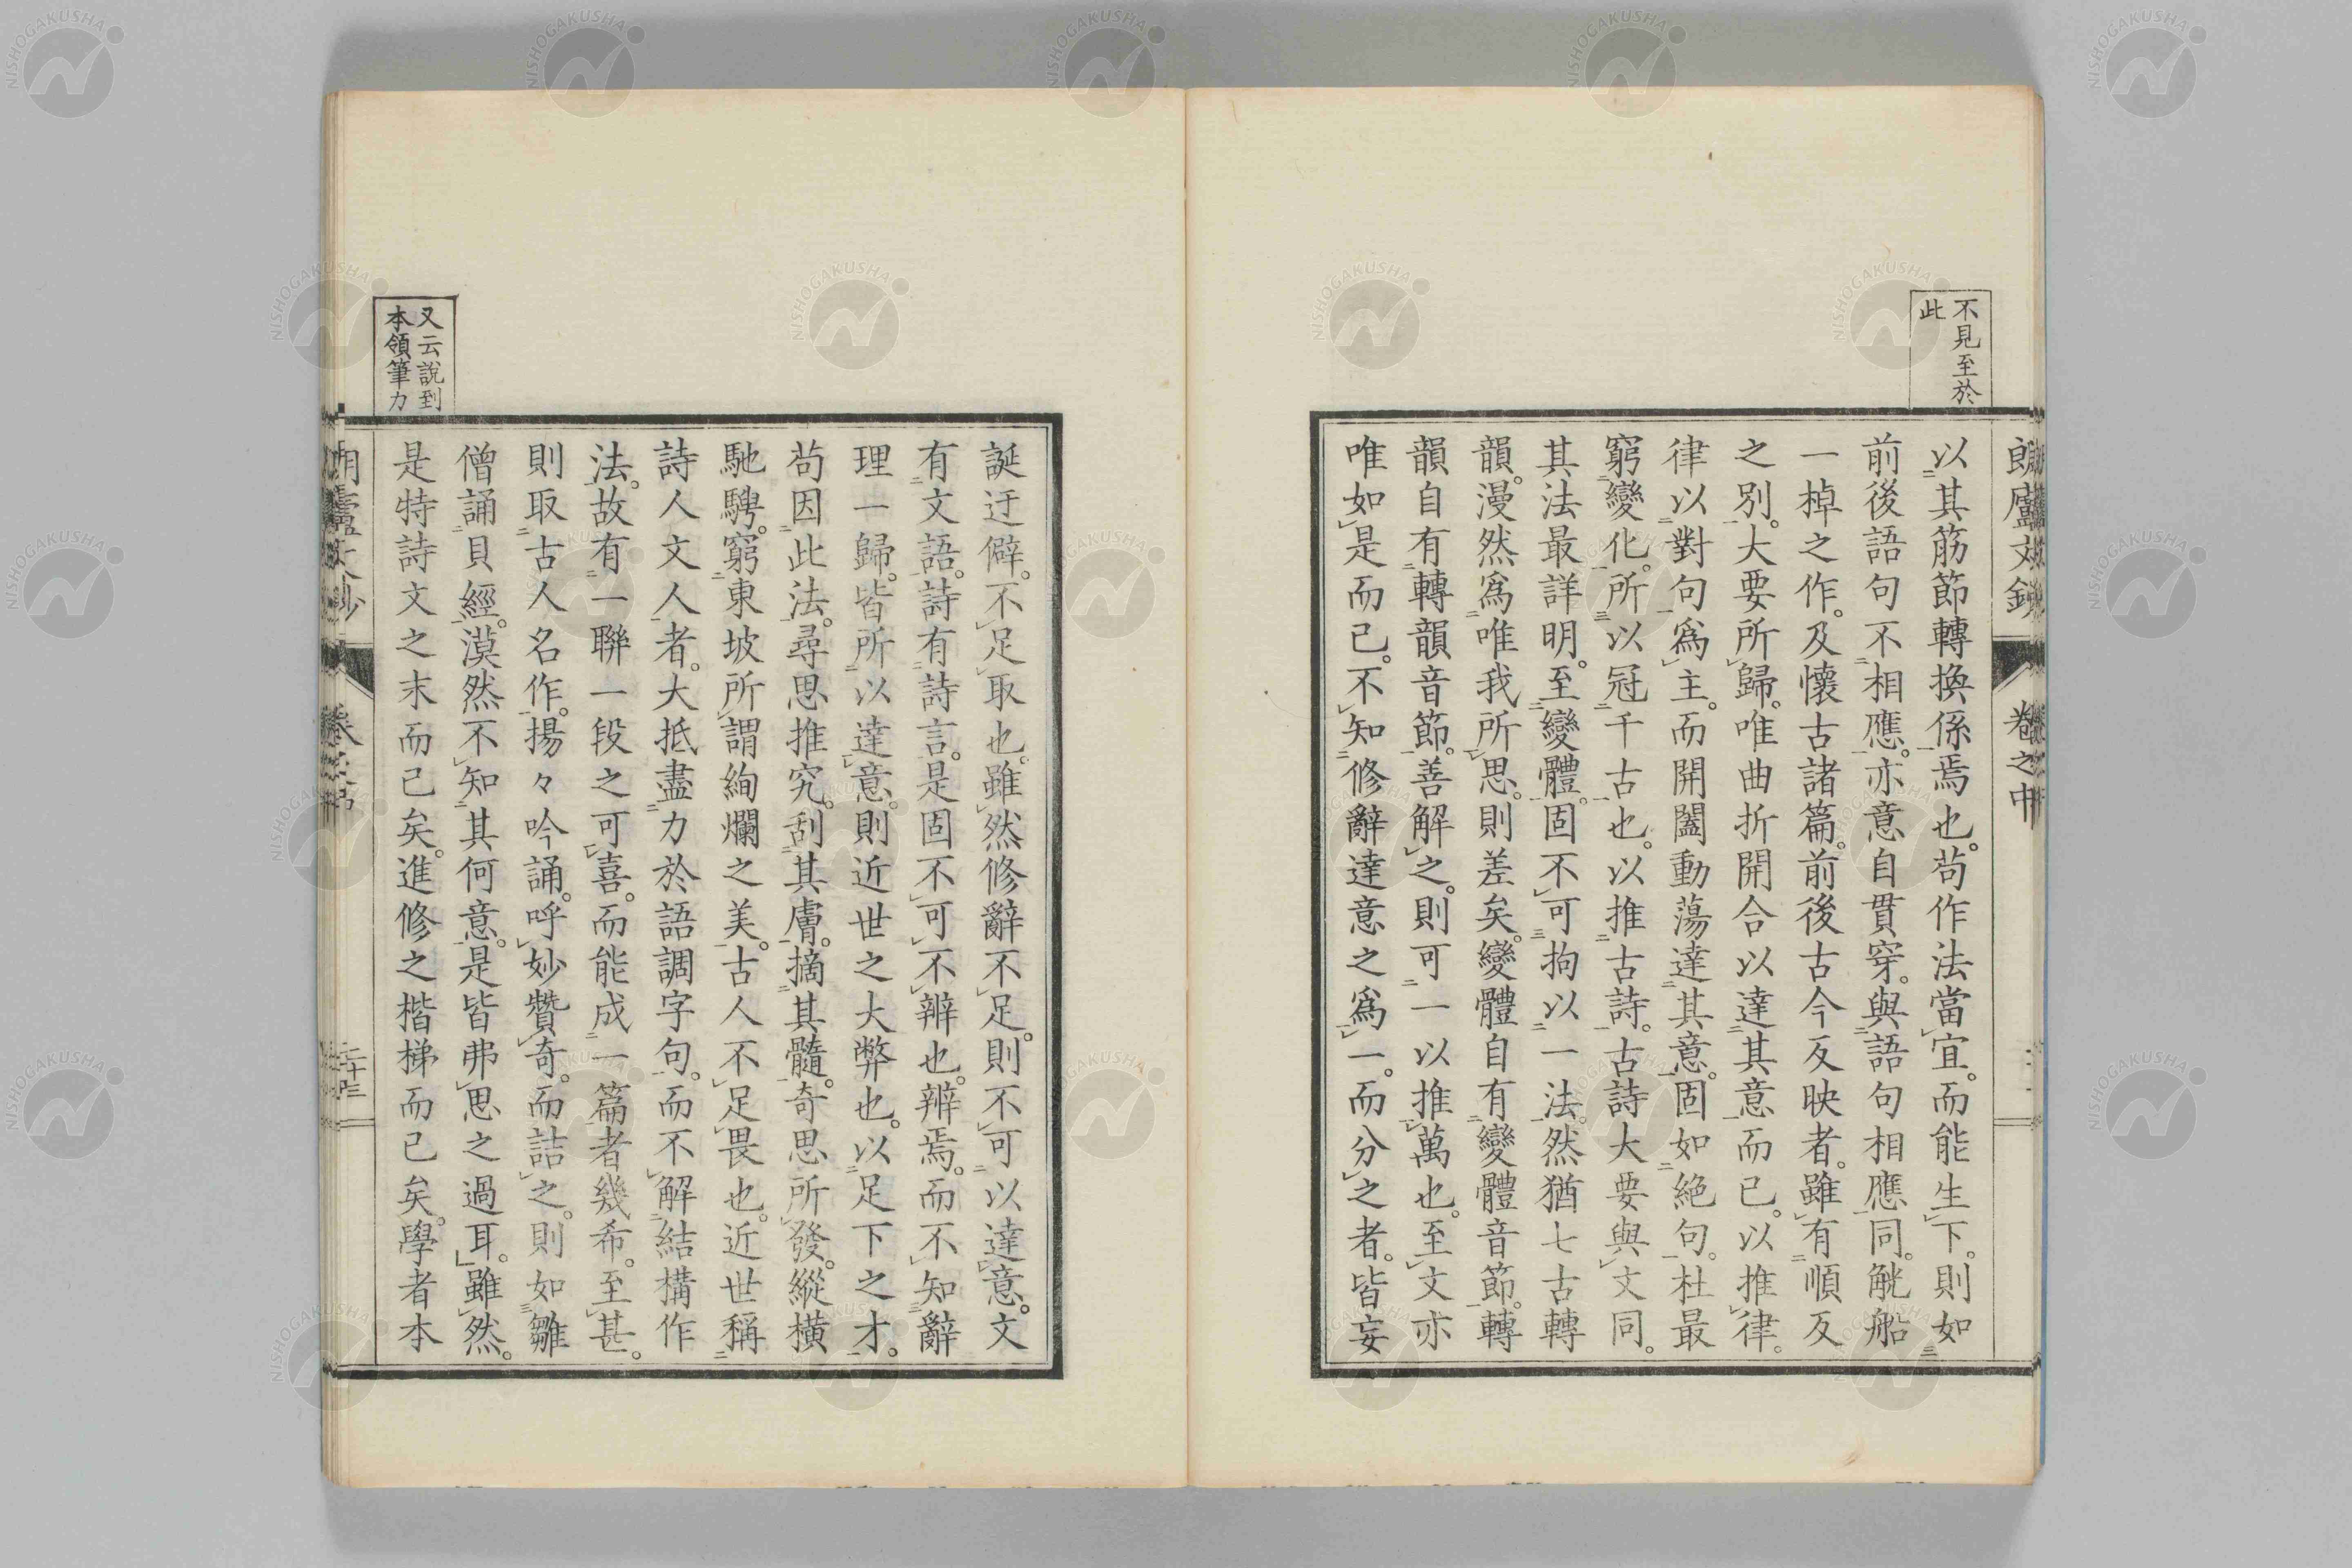 不見至於
此
朗廬文鈔
卷之中
以其筋節轉換係焉也。苟作法當宜。而能生下。則如
前後語句不相應。亦意自貫穿。與語句相應同。觥船
一棹之作。及懷古諸篇。前後古今反映者。雖有順反
之別。大要所歸。唯曲折開合以達其意而已。以推律。
律以對句爲主。而開闔動蕩達其意。固如絕句。杜最
窮變化。所以冠千古也。以推古詩。古詩大要與文同。
其法最詳明。至變體。固不可拘以一法。然猶七古轉
韻。漫然爲唯我所思。則差矣。變體自有變體音節。轉
韻自有轉韻音節。善解之。則可一以推萬也。至文亦
唯如是而已。不知修辭達意之爲一。而分之者。皆妄
誕迂僻。不足取也。雖然修辭不足。則不可以達意。文
有文語。詩有詩言。是固不可不辨也。辨焉。而不知辭
理一歸。皆所以達意。則近世之大弊也。以足下之才。
苟因此法。尋思推究。刮其膚。摘其髓。奇思所發。縱橫
馳騁。窮東坡所謂絢爛之美。古人不足畏也。近世稱
詩人文人者。大抵盡力於語調字句。而不解結構作
法。故有一聯一段之可喜。而能成一篇者幾希。至甚。
則取古人名作。揚々吟誦。呼妙贊奇。而詰之。則如雛
僧誦貝經。漠然不知其何意。是皆弗思之過耳。雖然。
是特詩文之末而已矣。進修之楷梯而已矣。學者本
又云說到
本領筆力
二十三
NISHOGAKUSHA